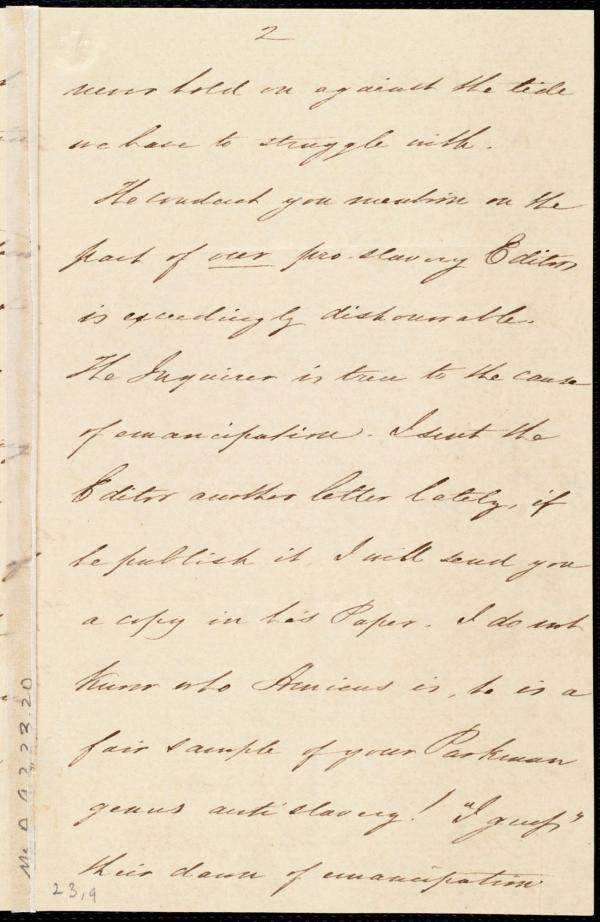 2
never hold on against the tide
we have to struggle with.
The conduct you mention on the
part of our pro-slavery Editors
is exceedingly dishonorable.
The Inquirer is true to the cause
of emancipation. I sent the
Editor another letter lately, if
he publish it, I will send you
a copy in his Paper. I do not
know who Amicus is, he is a
fair sample of your Parkman
genus anti slavery! "I guess"
their dawn of emancipation
23,9